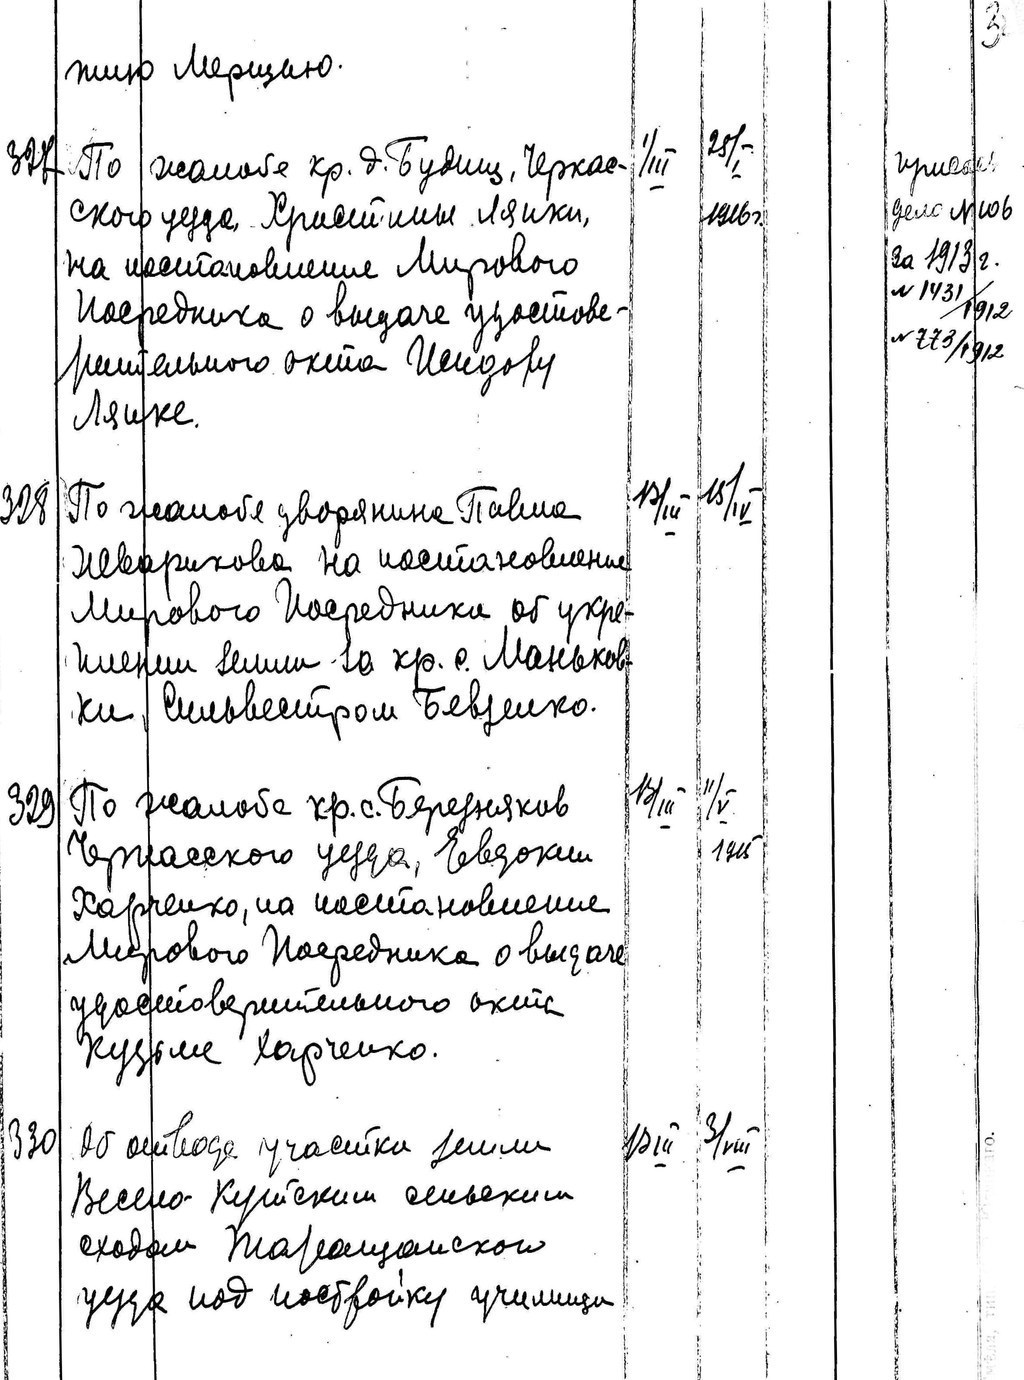 3
тию Мерщию.
327 По жалобе кр. д. Будищ, Черкас- 1/III 25/I
ского уезда, Христины Ляшки, 1916 г.
на постановление Мирового
Посредника о выдаче удостове-
рительного акта Исидору
Ляшке.
дела № 106
за 1913 г.
№ 1431/1912
№ 773/1912
328 По жалобе дворянина Павла 13/III 15/IV
на постановление
Мирового Посредника об укре-
плении земли за кр. с. Маньков-
ки, Сильвестром Бевзенко.
329 По жалобе кр. с. Березняков 13/III 11/V
Черкасского уезда, Евдокии 1915
Харченко, на постановление
Мирового Посредника о выдаче
удостоверительного акта
Кузьме Харченко.
330 Об отводе участка земли 13/III 3/VIII
Весело-Кутским сельским
сходом Таращанского
уезда под постройку училища